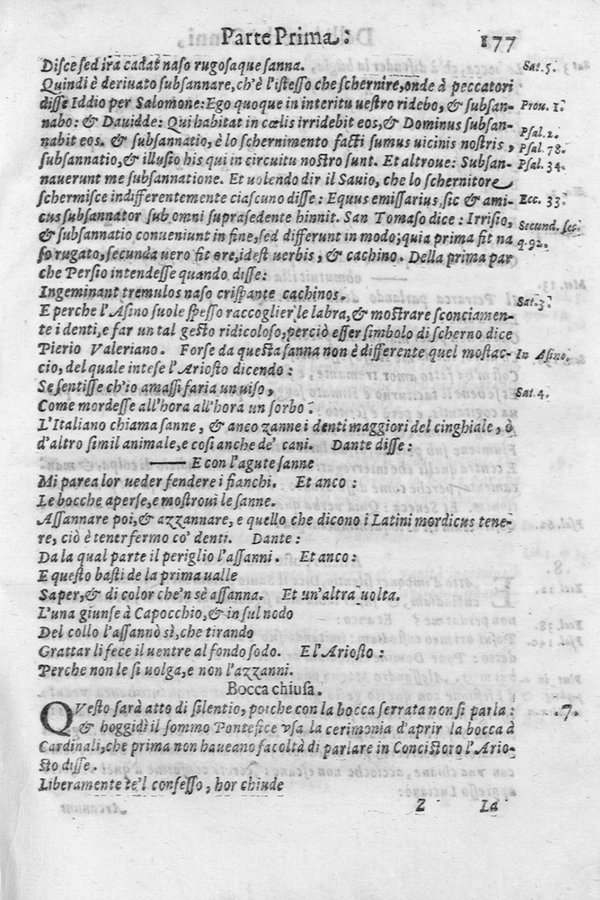 Parte Prima. 177
Disce sed ira cadat naso rugosaque sanna. Sat. 5.
Quindi è derivato subsannare, ch'è l'istesso che schernire, onde à peccatori
disse Iddio per Salomone: Ego quoque in interitu uestro ridebo, & subsan- Prou. 1.
nabo: & Dauidde: Qui habitat in cœlis irridebit eos, & Dominus subsan- Psal. 2.
nabit eos. & subsannatio, è lo schernimento facti sumus uicinis nostris, Psal. 78.
subsannatio, & illusio his qui in circuitu nostro sunt. Et altroue: Subsan- Psal. 34.
nauerunt me subsannatione. Et uolendo dir il Sauio, che lo schernitore
schermisce indifferentemente ciascuno disse: Equus emissarius, sic & ami- Ecc. 33.
cus subsannator sub omni suprasedente hinnit. San Tomaso dice: Irrisio,
& subsannatio conueniunt in fine, sed differunt in modo; quia prima fit na Secund. sec.
so rugato, secunda uero fit ore, idest uerbis, & cachino. Della prima par q. 92.
che Persio intendesse quando disse:
Ingeminant tremulos naso crispante cachinos. Sat. 3.
E perche l'Asino suole spesso raccoglier le labra, & mostrare sconciamen-
te i denti, e far un tal gesto ridicoloso, perciò esser simbolo di scherno dice
Pierio Valeriano. Forse da questa sanna non è differente quel mostac- In Asino.
cio, del quale intese l'Ariosto dicendo:
Se sentisse ch'io amassi faria un uiso, Sat. 4.
Come mordesse all'hora all'hora un sorbo.
L'Italiano chiama sanne, & anco zanne i denti maggiori del cinghiale, ò
d'altro simil animale, e cosi anche de' cani. Dante disse:
—— E con l'agute sanne
Mi parea lor ueder fendere i fianchi. Et anco:
Le bocche aperse, e mostroui le sanne.
Assannare poi, & azzannare, e quello che dicono i Latini mordicus tene-
re, ciò è tener fermo co' denti. Dante:
Da la qual parte il periglio l'assanni. Et anco:
E questo basti de la prima ualle
Saper, & di color che'n sè assanna. Et un'altra uolta.
L'una giunse à Capocchio, & in sul nodo
Del collo l'assannò sì, che tirando
Grattar li fece il uentre al fondo sodo. E l'Ariosto:
Perche non le si uolga, e non l'azzanni.
Bocca chiusa.
QVesto sarà atto di silentio, poiche con la bocca serrata non si parla: .7.
& hoggidì il sommo Pontefice vsa la cerimonia d'aprir la bocca à
Cardinali, che prima non haueano facoltà di parlare in Concistoro l'Ario-
sto disse.
Liberamente te'l confesso, hor chiude
Z La